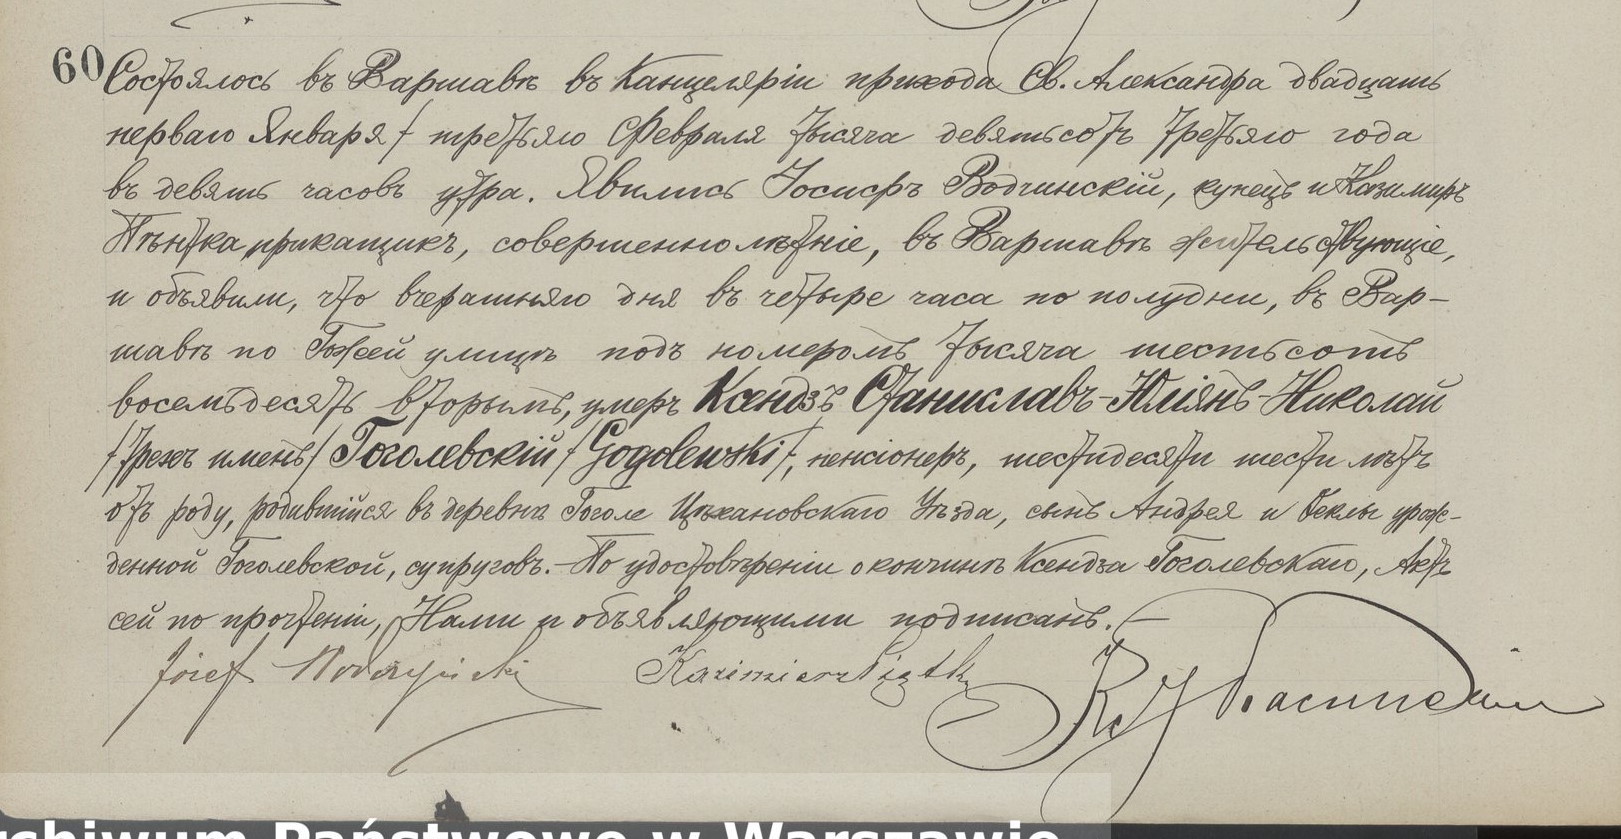 60 Состоялось въ Варшавѣ въ Канцеляріи прихода Св. Александра двадцать
перваго Января / третьяго Февраля тысяча девятьсотъ третьяго года
въ девять часовъ утра. Явились Іосифъ Водзинскій, купецъ и Казимиръ
Пѣнтка, прикащикъ, совершеннолѣтніе, въ Варшавѣ жительствующіе,
и объявили, что вчерашняго дня въ четыре часа по полудни, въ Вар-
шавѣ по Гожей улицѣ подъ номеромъ тысяча шестьсотъ
восемьдесятъ вторымъ, умеръ Ксендзъ Станиславъ-Юліянъ-Николай
/трехъ именъ/ Гоголевскій /Gogolewski/, пенсіонеръ, шестидесяти шести лѣтъ
отъ роду, родившійся въ деревнѣ Гоголе Цѣхановскаго Уѣзда, сынъ Андрея и Ѳеклы урож-
денной Гоголевской, супруговъ. - По удостовѣреніи о кончинѣ Ксендза Гоголевскаго, Актъ
сей по прочтеніи, Нами и объявляющими подписанъ. -
Józef Kazimierz Piątka
Archiwum Państwowe w Warszawie